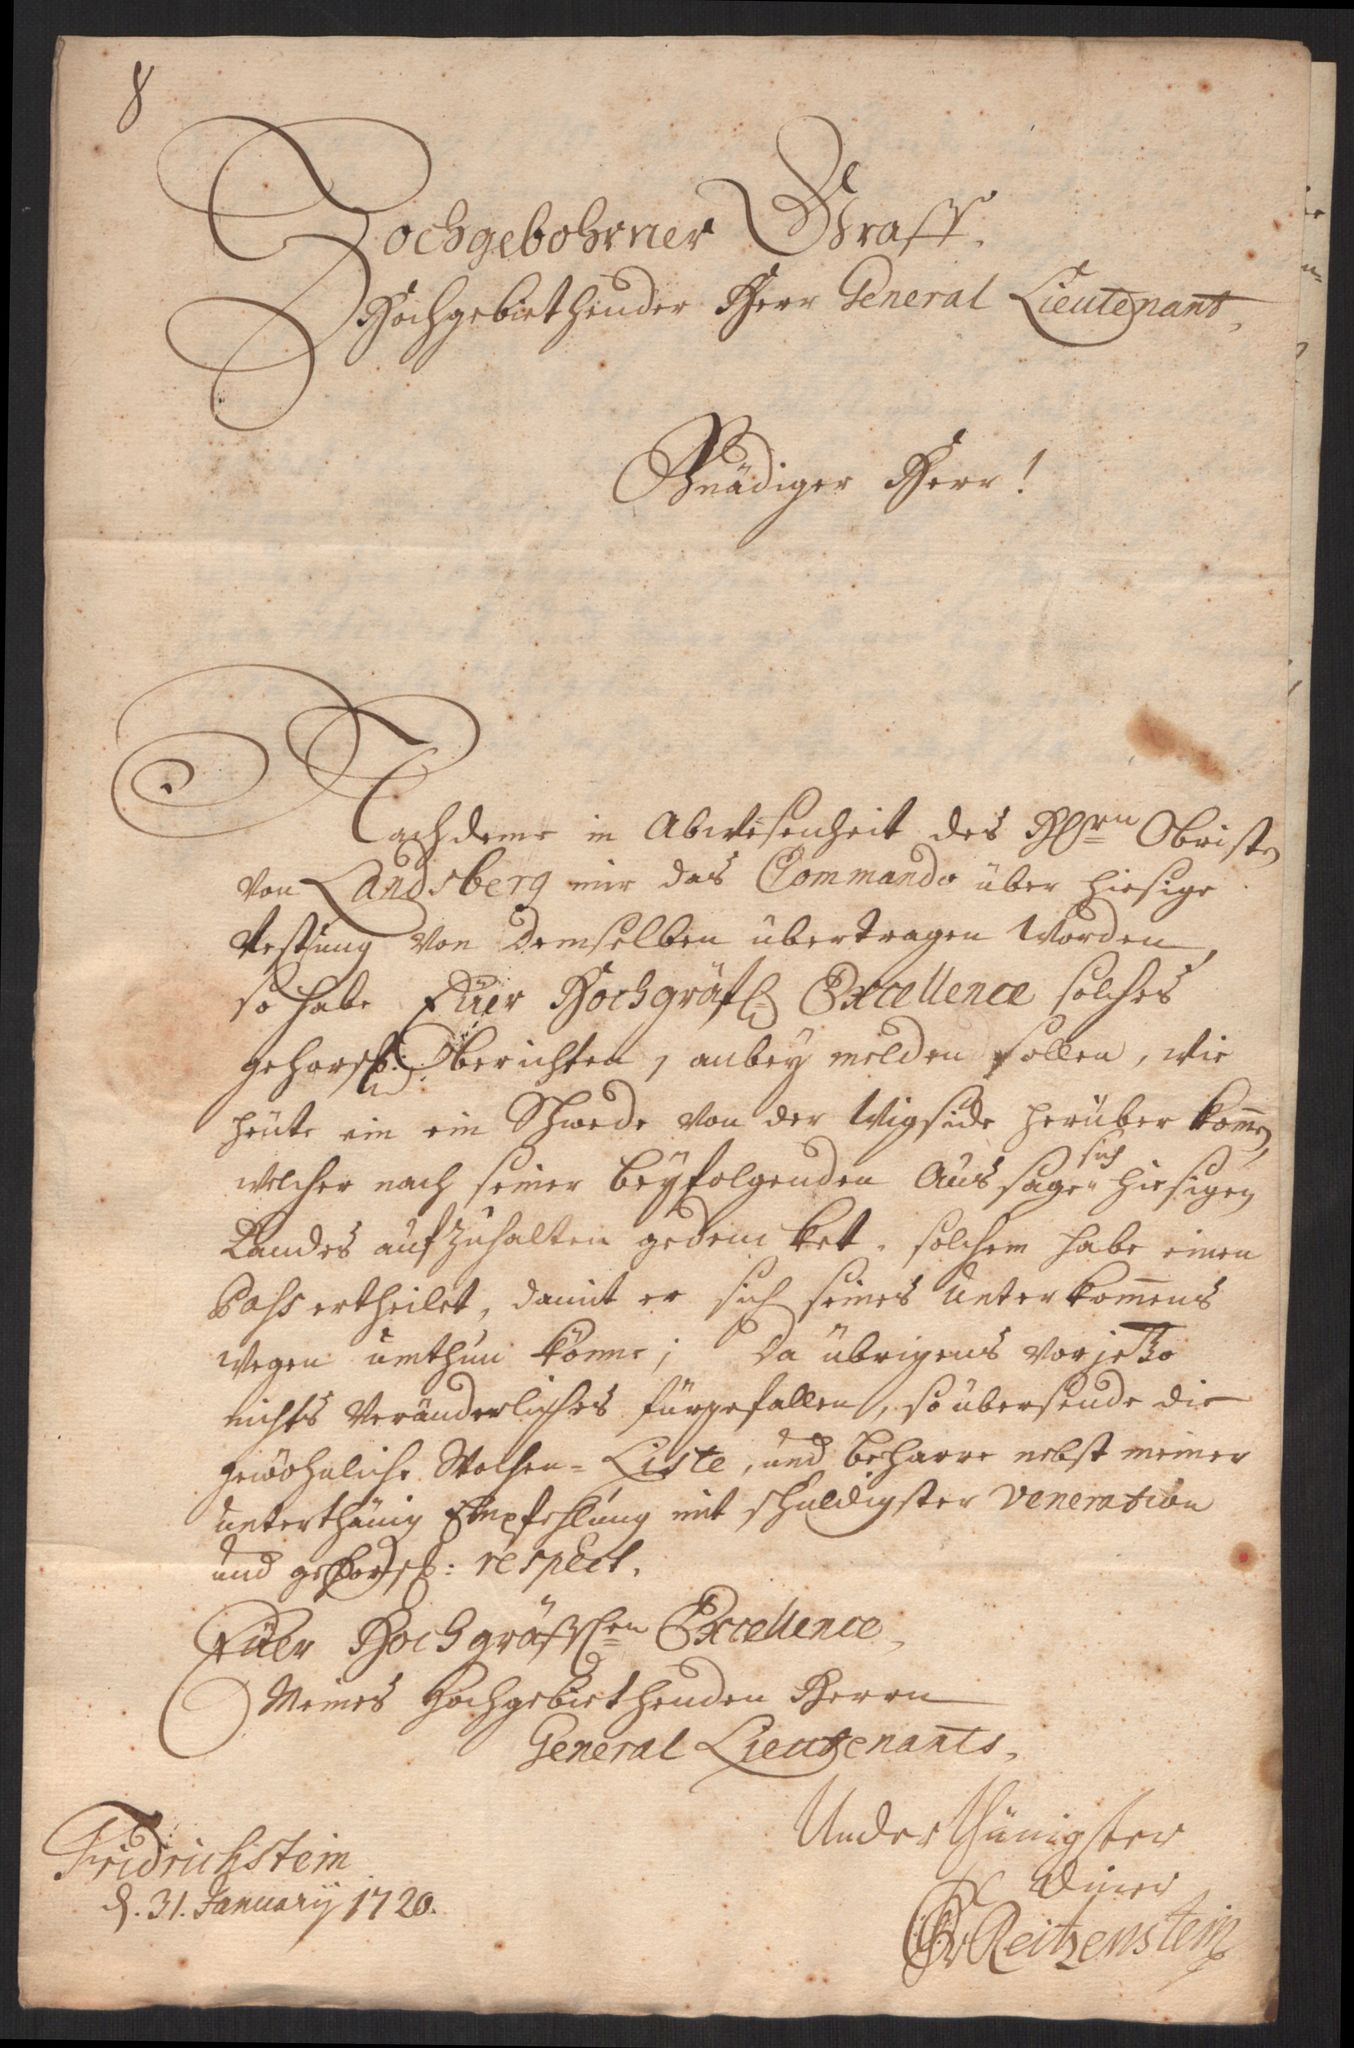 8
Hochgebohrner Graff.
Hochgebiethender Herr General Lieutenant,
Gnädiger Herr!
Nachdeme in Abwesenheit des Hhrn Obristen
von Landsberg mir das Commando über hiesige
Vestung von demselben übertragen worden,
so habe Euer Hochgräfl Excellence solches
gehorsl: berichten, anbey melden sollen, wie
heüte ein ein Schwede von der Wigside herüber kom̅en,
welcher nach seiner beyfolgenden Aussage sich hiesigen
Landes aufzuhalten gedencket. solchem habe einen
Pass ertheilet, damit er sich seines unterkom̅ens
wegen umthun könne; Da übrigens vorjetzo
nichts veränderliches fürgefallen, so übersende die
gewöhnliche Wochen=Liste, und beharre nebst meiner
unterthänig Empfehlung mit schuldigster veneration
und gehors: respect.
Euer Hochgräfflen Excellence,
Meines Hochgebiethenden Herrn
General Lieutenants,
Underthänigster
diner
Reitzenstein
Fridrichstein
d. 31. Januarij 1720.